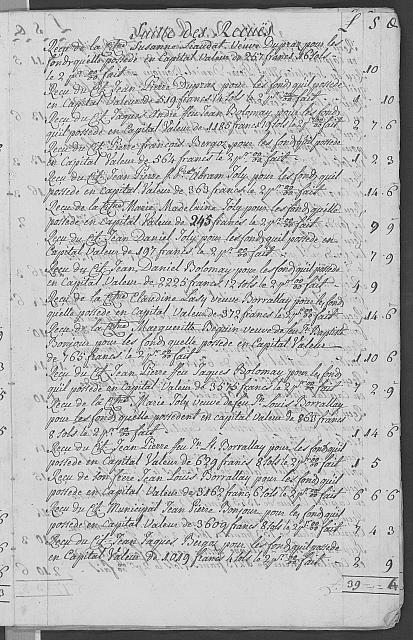 Suitte Des Reçuës £ S D
Reçu de la Citne Susanne Jaoudat Veuve Dupraz pour les
fonds qu'elle possède en Capital Valeur de 257 francs 16 sols
le 2 pr fait 10
Reçu du Cit. Jean Pierre Dupraz pour les fonds qu'il possède
en Capital Valeur de 519 francs 14 sols le 2 pr fait 1 10
Reçu du Cit. Jaques André feu Jean Bolomay pour les fonds
qu'il possède en Capital Valeur de 1185 francs sols le 2 pr fait 2 7 6
Reçu du Cit. Pierre François Bergoz pour les fonds qu'il possède
en Capital Valeur de 564 francs le 2 pr fait 1 2 3
Reçu du Cit. Jean Pierre f. Abram Joly pour les fonds qu'il
possède en Capital Valeur de 363 francs le 2 pr fait 14 6
Reçu de la Citne Marie Madelaine Joly pour les fonds qu'elle
possède en Capital Valeur de 245 francs le 2 pr fait 9 9
Reçu du Cit. Jean Daniel Joly pour les fonds qu'il possède en
Capital Valeur de 197 francs le 2 pr fait 7 9
Reçu du Cit. Jean Daniel Bolomay pour les fonds qu'il possède
en Capital Valeur de 2225 francs 12 sols le 2 pr fait 4 9
Reçu de la Citne Claudine Veuve Borrallay pour les fonds
qu'elle possède en Capital Valeur de 372 francs le 2 pr fait 14 6
Reçu de la Citne Marguerite veuve de feu Jn Baptiste
Bonjour pour les fonds qu'elle possède en Capital Valeur
de 765 francs le 2 pr fait 1 10 6
Reçu du Cit. Jean Pierre feu Jaques Bolomay pour les fonds
qu'il possède en Capital Valeur de 3575 francs le 2 pr fait 7 2 9
Reçu de la Citne Marie Joly veuve de feu Jn Louis Borrallay
pour les fonds qu'elle possèdent en capital Valeur de 863 francs
8 sols le 2 pr fait 1 14 6
Reçu du Cit. Jean Pierre feu Jn Borrallay pour les fonds qu'il
possède en Capital Valeur de 629 francs 8 sols le 2 pr fait 1 5
Reçu de son frère Jean Louis Borrallay pour les fonds qu'il
possède en Capital Valeur de 3162 francs 6 sols le 2 pr fait 6 6 6
Reçu du Cit. Municipal Jean Pierre Bonjour pour les fonds qu'il
possède en Capital Valeur de 3609 francs 8 sols le 2 pr fait 7 4 3
Reçu du Cit. Jean Jaques Bergoz pour les fonds qu'il possède
en Capital Valeur de 1019 francs 4 sols le 2 pr fait 2 9
39 4